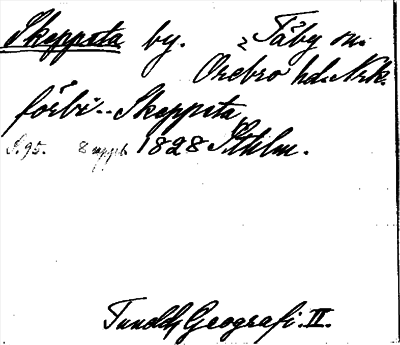 Skeppsta by. i Täby sn.
Örebro hd. Nrk.
förbi -- Skeppsta,
S. 95. 8 uppl. 1828 Sthlm.
Tuneld, Geografi. II.